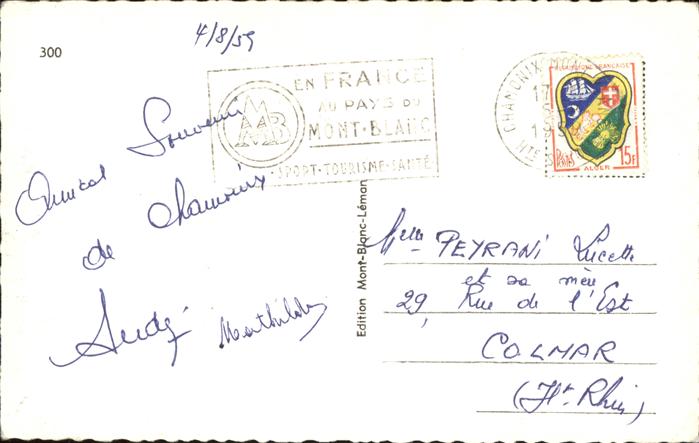 300
4/8/59
EN FRANCE
AU PAYS DU
MONT-BLANC
SPORT-TOURISME-SANTÉ
CHAMONIX MON
17
195
HTE S
FRANÇAISE
POSTES 15F
ALGER
Amical Souvenir
de Chamonix
André Mathilde
Edition Mont-Blanc-Léman
Melle PEYRANI Lucette
et sa mère
29, Rue de l'Est
COLMAR
(Ht Rhin)